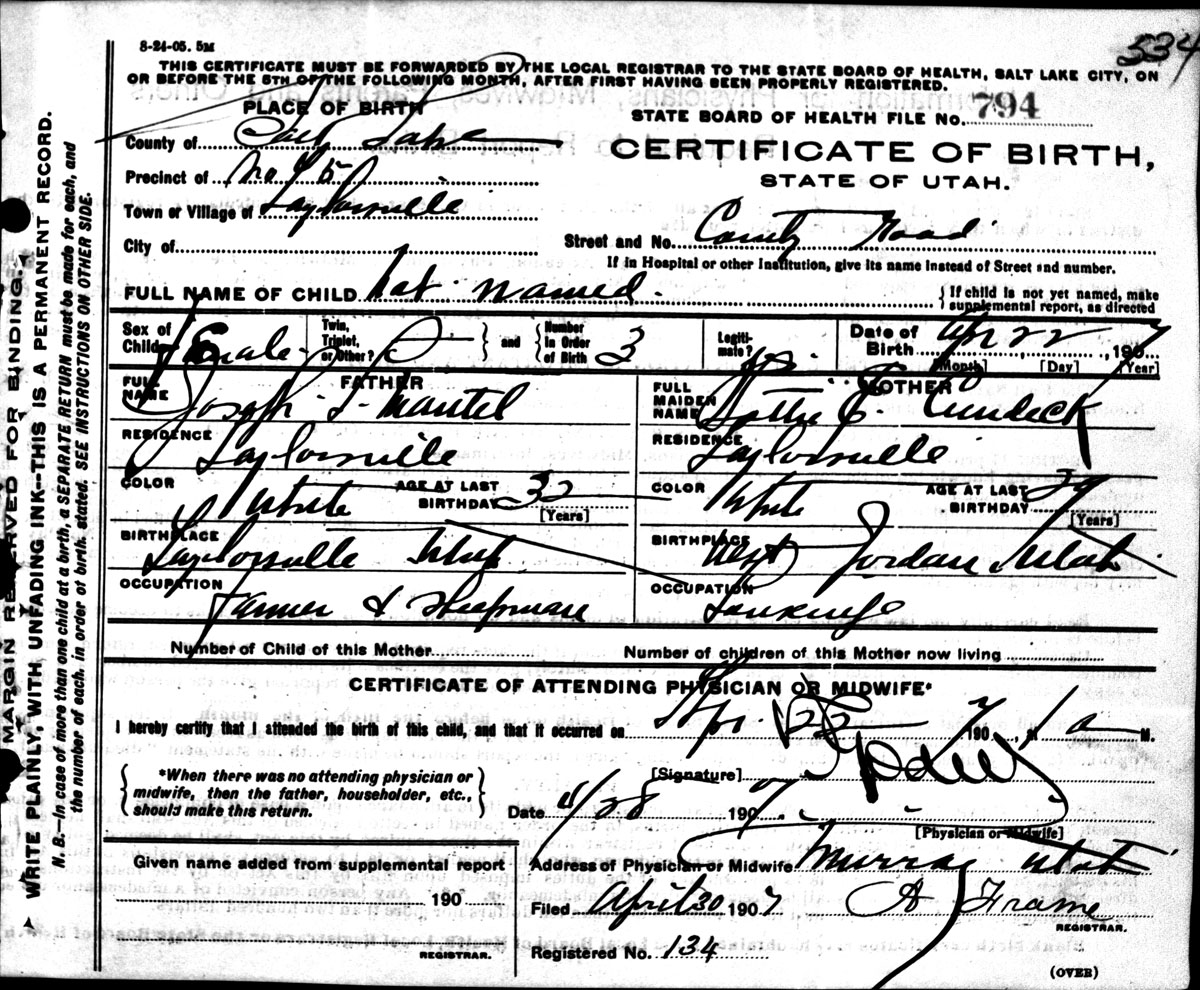 8-24-05. 5M
534
THIS CERTIFICATE MUST BE FORWARDED BY THE LOCAL REGISTRAR TO THE STATE BOARD OF HEALTH, SALT LAKE CITY, ON
OR BEFORE THE 5TH OF THE FOLLOWING MONTH, AFTER FIRST HAVING BEEN PROPERLY REGISTERED.
PLACE OF BIRTH
STATE BOARD OF HEALTH FILE No. 794
County of Salt Lake
CERTIFICATE OF BIRTH,
STATE OF UTAH.
Precinct of No 45
Town or Village of Taylorsville
City of
Street and No. County Road
If in Hospital or other Institution, give its name instead of Street and number.
FULL NAME OF CHILD not named.
{ If child is not yet named, make supplemental report, as directed
Sex of Child Female. Twin, Triplet, or Other? } and { Number in Order of Birth 3 Legiti- mate? Date of Birth Apr 22, 1907
[Month] [Day] [Year]
FATHER MOTHER
FULL NAME Joseph S. Mantel FULL MAIDEN NAME Lottie E.
RESIDENCE Taylorsville RESIDENCE Taylorsville
COLOR White AGE AT LAST BIRTHDAY 32 COLOR White AGE AT LAST BIRTHDAY 29
[Years] [Years]
BIRTHPLACE Taylorsville Utah BIRTHPLACE West Jordan Utah
OCCUPATION Farmer & Sheepman OCCUPATION
Number of Child of this Mother Number of children of this Mother now living
CERTIFICATE OF ATTENDING PHYSICIAN OR MIDWIFE*
I hereby certify that I attended the birth of this child, and that it occurred on Apr. 22 1907, at 1 a M.
{ *When there was no attending physician or midwife, then the father, householder, etc., should make this return. }
[Signature]
Date 4/28 1907
[Physician or Midwife]
Given name added from supplemental report
190
REGISTRAR.
Address of Physician or Midwife Murray Utah
Filed April 30 1907 A Frame
REGISTRAR.
Registered No. 134
(OVER)
MARGIN RESERVED FOR BINDING.
WRITE PLAINLY, WITH UNFADING INK--THIS IS A PERMANENT RECORD.
N. B.—In case of more than one child at a birth, a SEPARATE RETURN must be made for each, and
the number of each. in order of birth. stated. SEE INSTRUCTIONS ON OTHER SIDE.